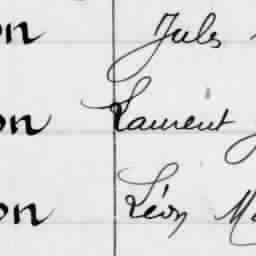 on Jules
on Laurent
on Léon